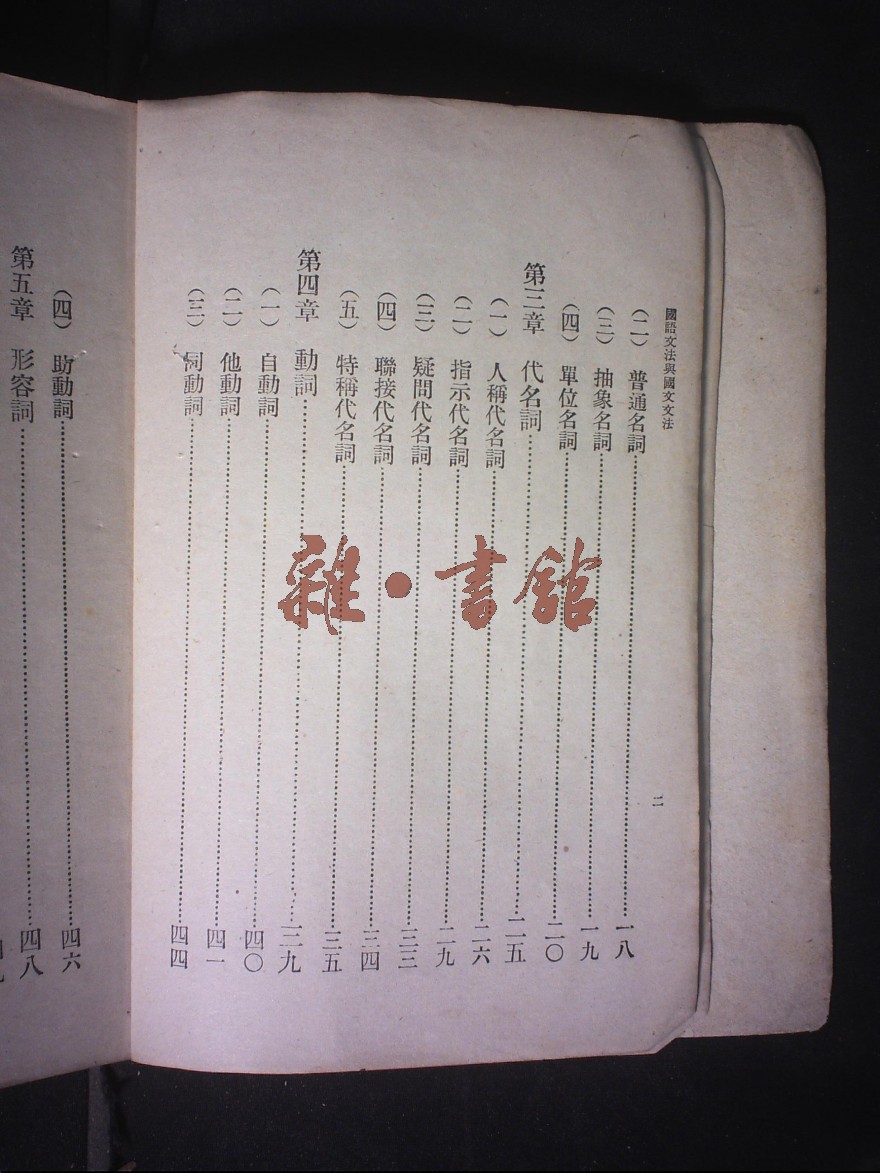 國語文法與國文文法
二
(二) 普通名詞……一八
(三) 抽象名詞……一九
(四) 單位名詞……二〇
第三章 代名詞……二五
(一) 人稱代名詞……二六
(二) 指示代名詞……二九
(三) 疑問代名詞……三三
(四) 聯接代名詞……三四
(五) 特稱代名詞……三五
第四章 動詞……三九
(一) 自動詞……四〇
(二) 他動詞……四一
(三) 同動詞……四四
(四) 助動詞……四六
第五章 形容詞……四八
雜·書館